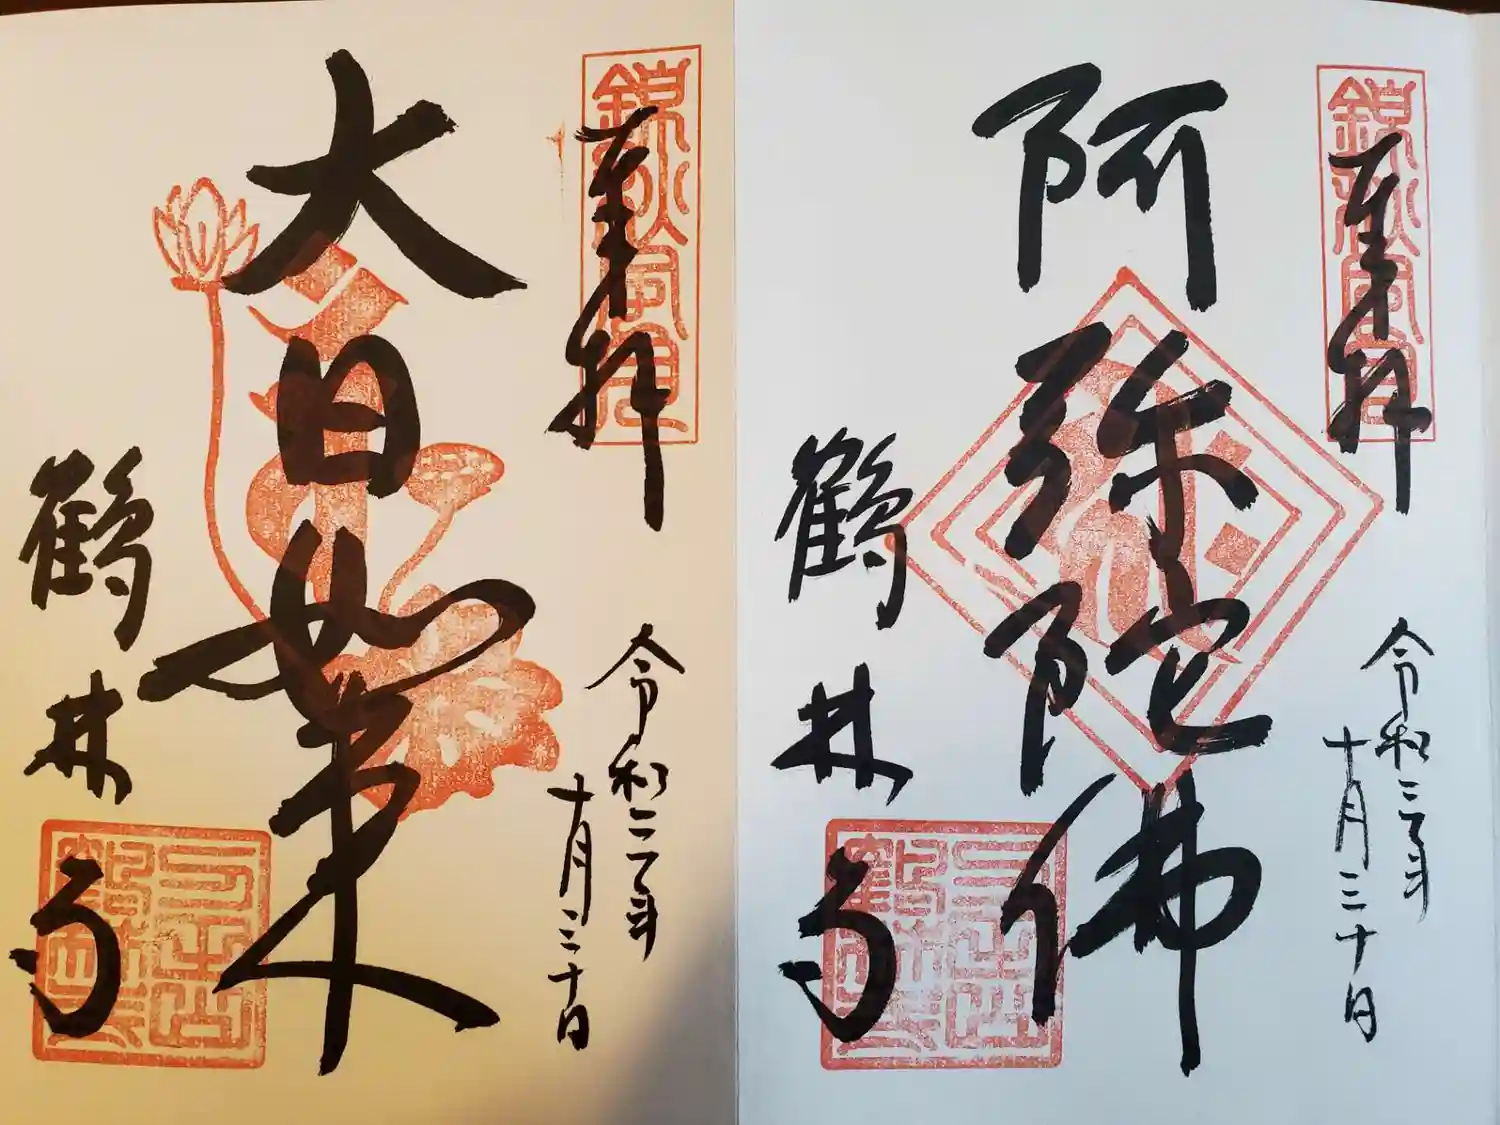 奉拝
令和三年
十月三十日
阿弥陀佛
鶴林寺
奉拝
令和三年
十月三十日
大日如来
鶴林寺